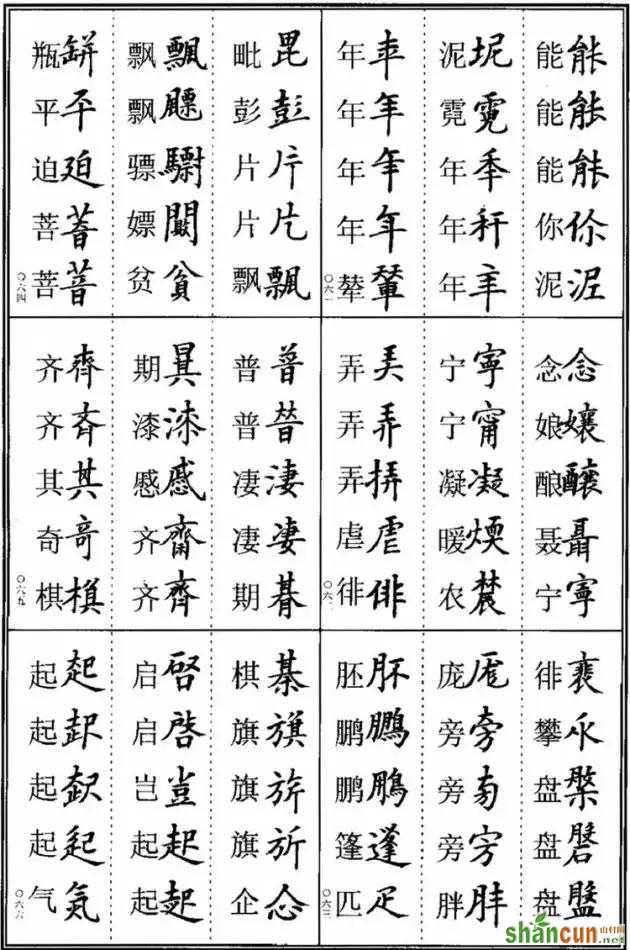 能能
能能
能能
你伱
泥泥
泥坭
霓霓
年秊
年秆
年年
年年
年年
年年
年年
辇輦
〇六一
念念
娘孃
酿釀
聂聶
宁寧
宁寧
宁甯
凝凝
暖煗
农農
弄弄
弄弄
弄挵
虐虐
徘俳
〇六
徘裵
攀
盘槃
盘磐
盘盤
庞厖
旁旁
旁旁
旁旁
胖胖
胚胚
鹏鵬
鹏鵬
篷蓬
匹疋
〇六三
毗毘
彭彭
片片
片片
飘飄
飘飄
飘飃
骠驃
嫖闝
贫貧
瓶缾
平平
迫廹
菩菩
菩菩
〇六四
普普
普暜
凄淒
凄凄
期朞
期
漆漆
慼慼
齐齊
齐齊
齐齊
齐斉
其其
奇竒
棋棋
〇六五
棋棊
旗旗
旗旂
旗旂
企企
启啓
启啟
岂豈
起起
起起
起起
起起
起起
起起
气氣
〇六六
shancun
山村网
.net